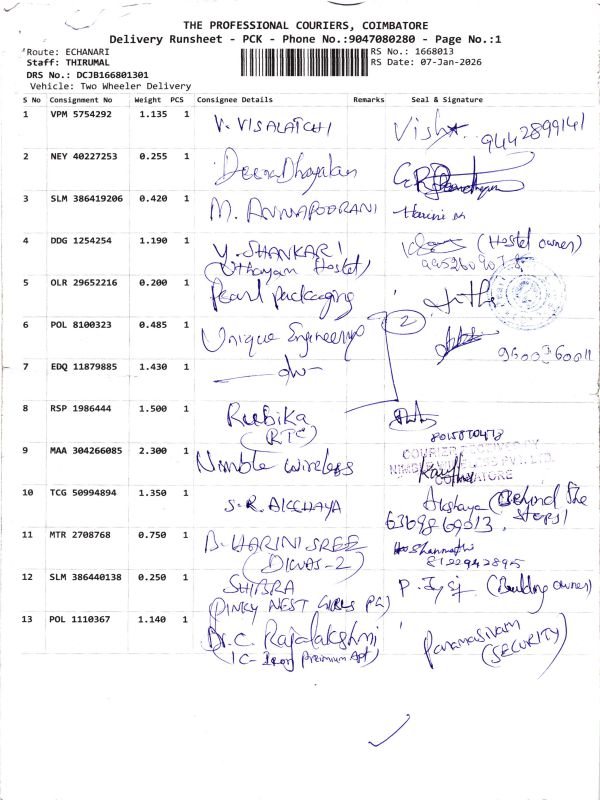 THE PROFESSIONAL COURIERS, COIMBATORE
Delivery Runsheet - PCK - Phone No.:9047080280 - Page No.:1
Route: ECHANARI
Staff: THIRUMAL
DRS No.: DCJB166801301
Vehicle: Two Wheeler Delivery
RS No.: 1668013
RS Date: 07-Jan-2026
S No Consignment No Weight PCS Consignee Details Remarks Seal & Signature
1 VPM 5754292 1.135 1 V. VISALATCHI 9442899141
2 NEY 40227253 0.255 1 Deena Dhayalan
3 SLM 386419206 0.420 1 M. ANNAPOORANI Harini M
4 DDG 1254254 1.190 1 Y. SHANKARI (Hostel owner)
(Uthayam Hostel)
5 OLR 29652216 0.200 1 Pearl packaging
6 POL 8100323 0.485 1 Unique Engineering 2
7 EDQ 11879885 1.430 1
8 RSP 1986444 1.500 1 Rubika
(RTC)
9 MAA 304266085 2.300 1 Nimble wireless
COIMBATORE
10 TCG 50994894 1.350 1 S.R. AKCHAYA Akshaya (Behind the
Steps)
6369869013
11 MTR 2708768 0.750 1 B. HARINI SREE
8122942895
12 SLM 386440138 0.250 1 SHIBRA (Building owner)
(PINKY NEST GIRLS PG)
13 POL 1110367 1.140 1 Dr. C. Rajalakshmi Paramasivam
(SECURITY)
Premium Apt)